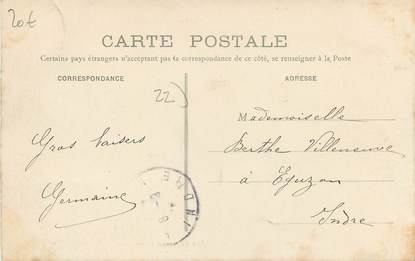 20€
CARTE POSTALE
Certains pays étrangers n'acceptant pas la correspondance de ce côté, se renseigner à la Poste
CORRESPONDANCE
ADRESSE
22)
Mademoiselle
Berthe Villeneuve
à Eguzon
Indre
Gros baisers
Germaine
INDRE